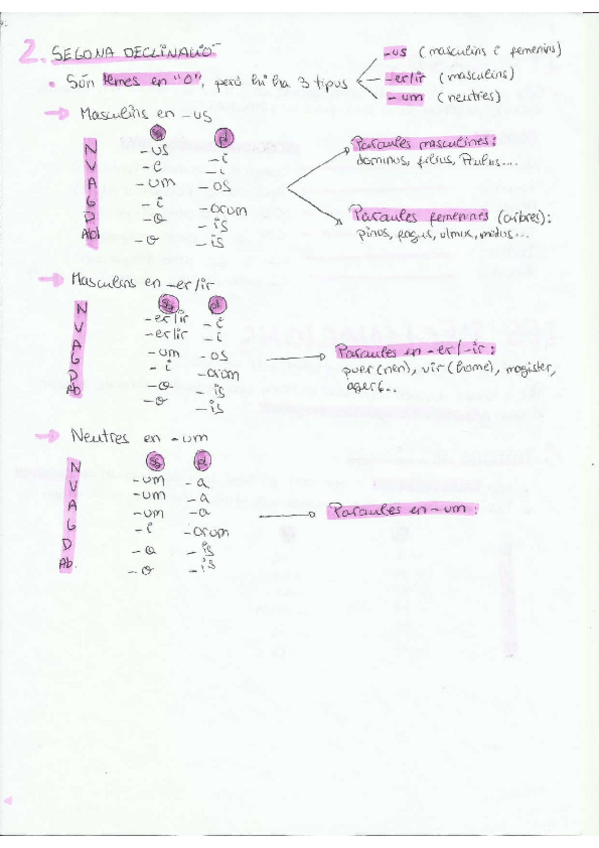 2. SEGONA DECLINACIÓ
-us (masculins i femenins)
• Són temes en "O", però hi ha 3 tipus
-er/ir (masculins)
-um (neutres)
→ Masculins en -us
sg pl
N -us -i
V -e -i
A -um -os
G -i -orum
D -o -is
Ab -o -is
Paraules masculines:
dominus, filius,
Paraules femenines (arbres):
pinus, fagus, ulmix, malus...
→ Masculins en -er/ir
sg pl
N -er/ir -i
V -er/ir -i
A -um -os
G -i -orum
D -o -is
Ab -o -is
Paraules en -er/-ir:
puer (nen), vir (home), magister,
ager
→ Neutres en -um
sg pl
N -um -a
V -um -a
A -um -a
G -i -orum
D -o -is
Ab. -o -is
Paraules en -um: